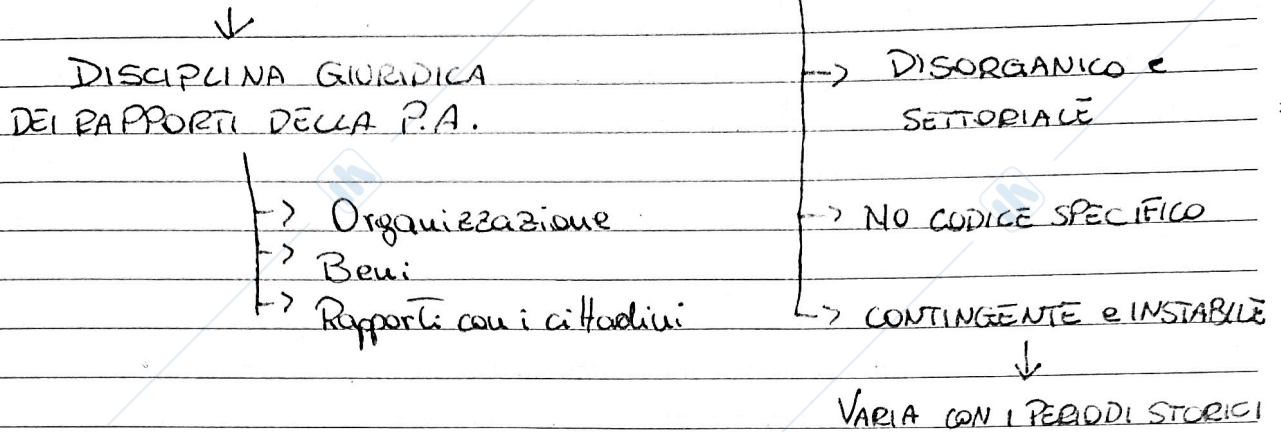 DISCIPLINA GIURIDICA
DEI RAPPORTI DELLA P.A.
-> Organizzazione
-> Beni
-> Rapporti con i cittadini
-> DISORGANICO e
SETTORIALE
-> NO CODICE SPECIFICO
-> CONTINGENTE e INSTABILE
VARIA CON I PERIODI STORICI